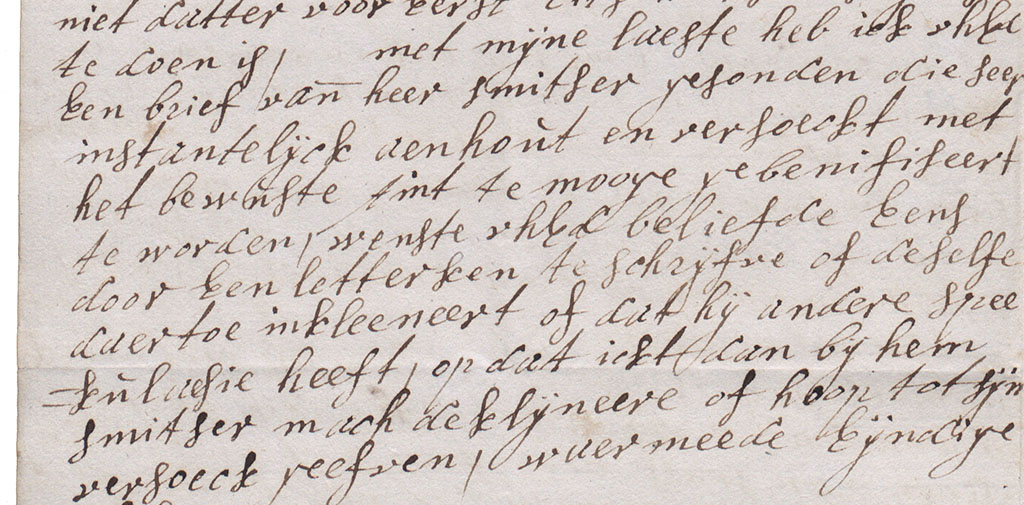 niet datter voor eerst
te doen is, met mijne laeste heb ick uhEd
Een brief van heer smitser gesonden die seer
instantelijck aenhout en versoeckt met
het bewuste te mooge gebenifiseert
te worden, wenste uhEd beliefde Eens
door Een letterken te schrijfve of deselfe
daertoe inkleeneert of dat hij andere spee
=kulaesie heeft, op dat ickt dan bij hem
smitser mach deklijneere of hoop tot sijn
versoeck geefven, waermeede Eijndige